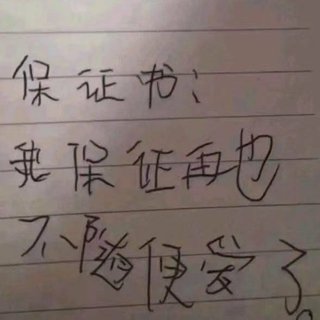 保证书：
我保证再也
不随便发了。